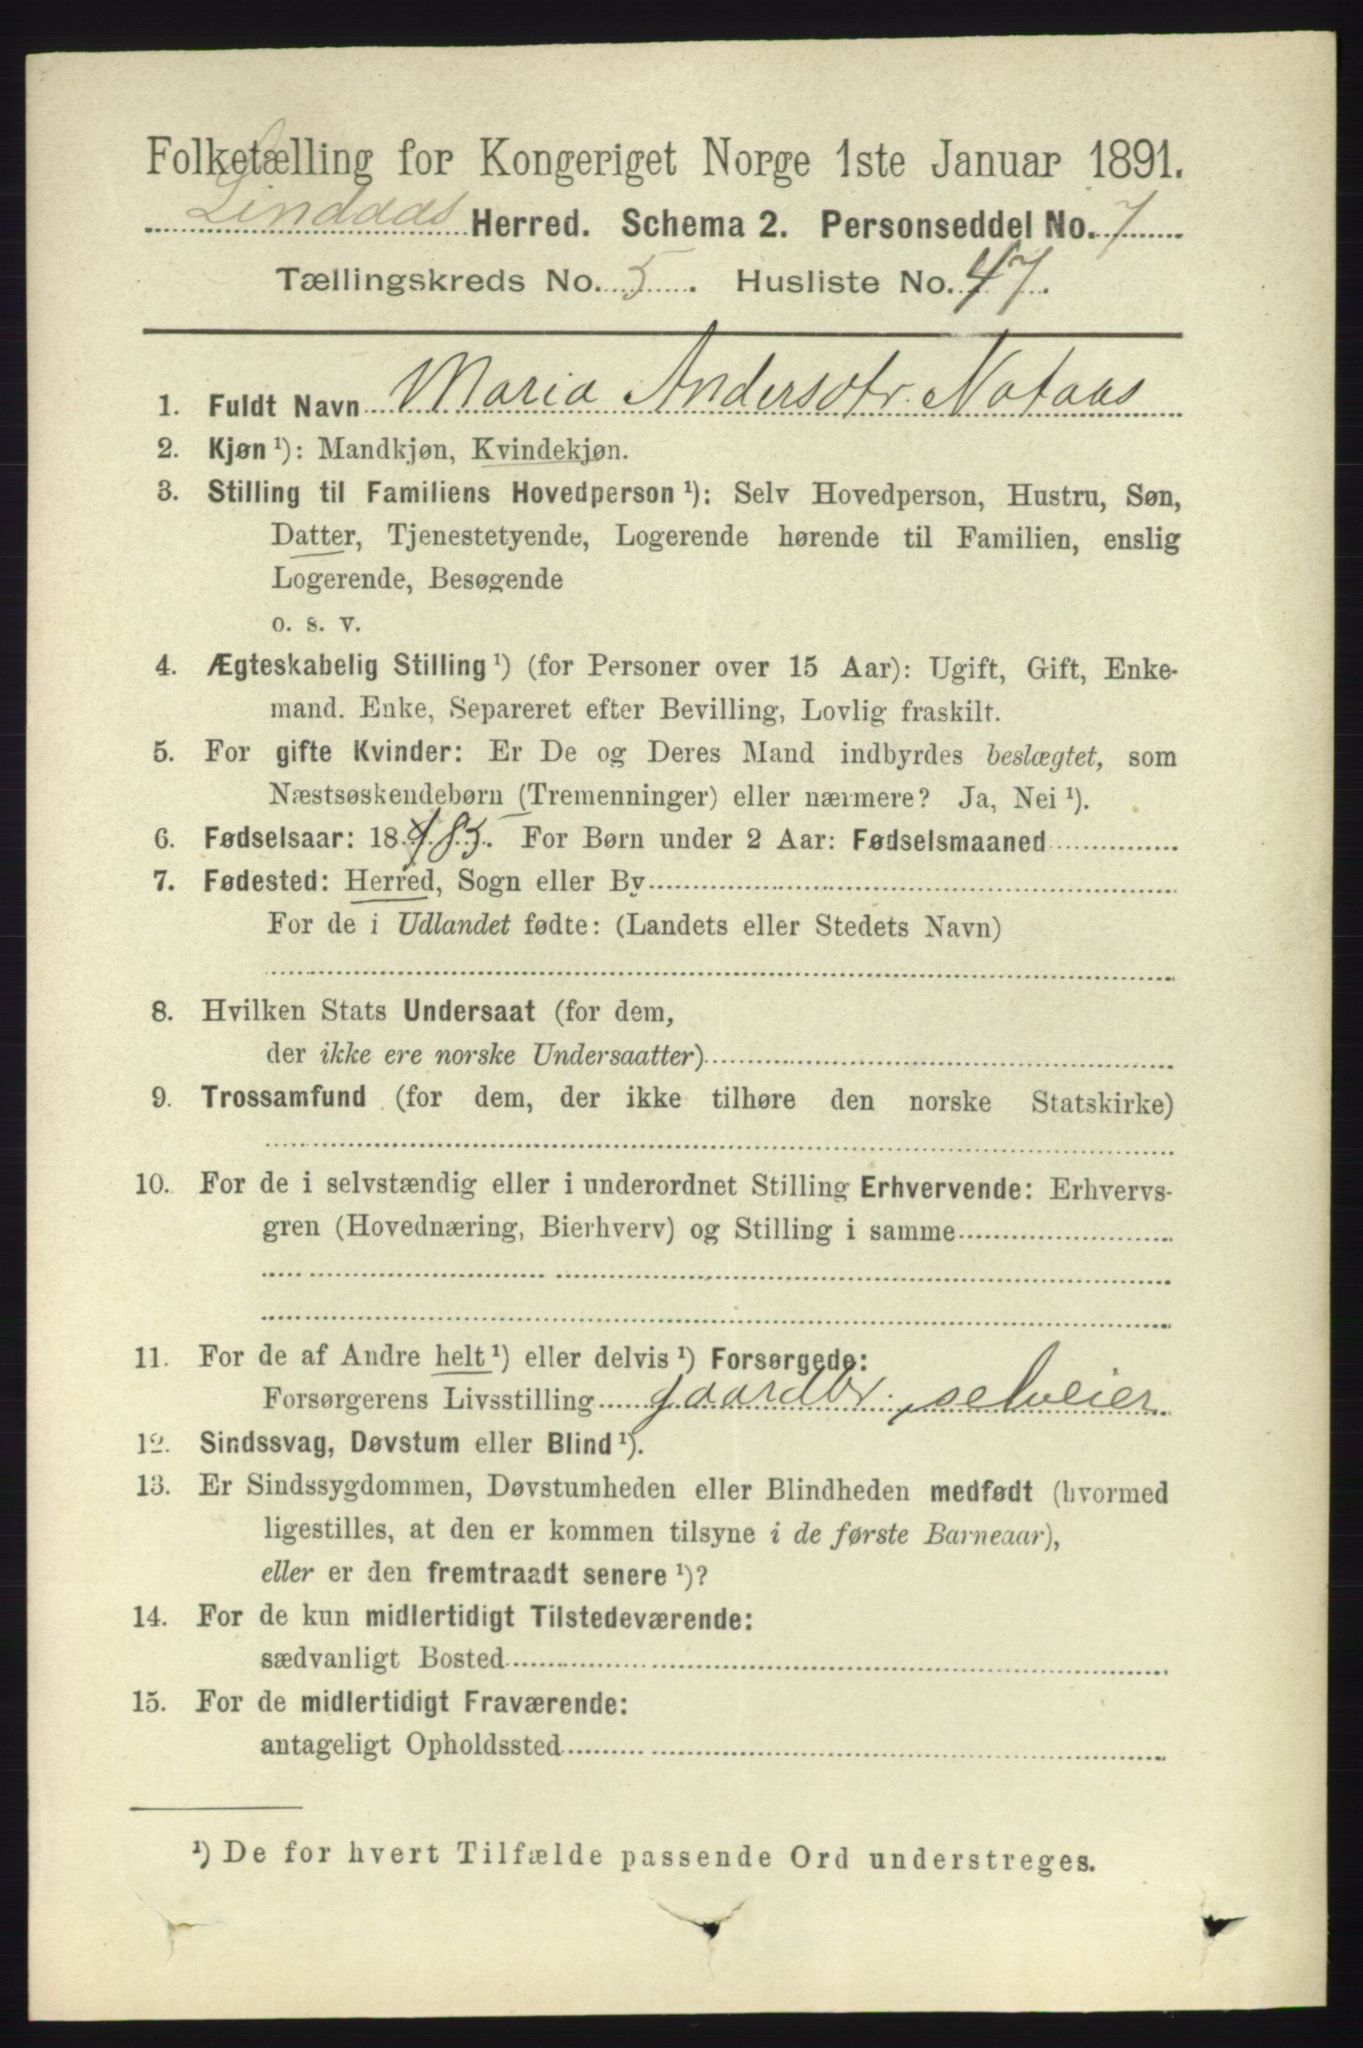 Folketælling for Kongeriget Norge 1ste Januar 1891.
Lindaas Herred. Schema 2. Personseddel No. 7
Tællingskreds No. 5. Husliste No. 47.
1. Fuldt Navn Maria Andersdtr. Nataas
2. Kjøn ¹): Mandkjøn, Kvindekjøn.
3. Stilling til Familiens Hovedperson ¹): Selv Hovedperson, Hustru, Søn,
Datter, Tjenestetyende, Logerende hørende til Familien, enslig
Logerende, Besøgende
o. s. v.
4. Ægteskabelig Stilling ¹) (for Personer over 15 Aar): Ugift, Gift, Enke-
mand. Enke, Separeret efter Bevilling, Lovlig fraskilt.
5. For gifte Kvinder: Er De og Deres Mand indbyrdes beslægtet, som
Næstsøskendebørn (Tremenninger) eller nærmere? Ja, Nei ¹).
6. Fødselsaar: 1885. For Børn under 2 Aar: Fødselsmaaned
7. Fødested: Herred, Sogn eller By
For de i Udlandet fødte: (Landets eller Stedets Navn)
8. Hvilken Stats Undersaat (for dem,
der ikke ere norske Undersaatter)
9. Trossamfund (for dem, der ikke tilhøre den norske Statskirke)
10. For de i selvstændig eller i underordnet Stilling Erhvervende: Erhvervs-
gren (Hovednæring, Bierhverv) og Stilling i samme
11. For de af Andre helt ¹) eller delvis ¹) Forsørgede:
Forsørgerens Livsstilling gaardbr. selveier
12. Sindssvag, Døvstum eller Blind ¹).
13. Er Sindssygdommen, Døvstumheden eller Blindheden medfødt (hvormed
ligestilles, at den er kommen tilsyne i de første Barneaar),
eller er den fremtraadt senere ¹)?
14. For de kun midlertidigt Tilstedeværende:
sædvanligt Bosted
15. For de midlertidigt Fraværende:
antageligt Opholdssted
¹) De for hvert Tilfælde passende Ord understreges.